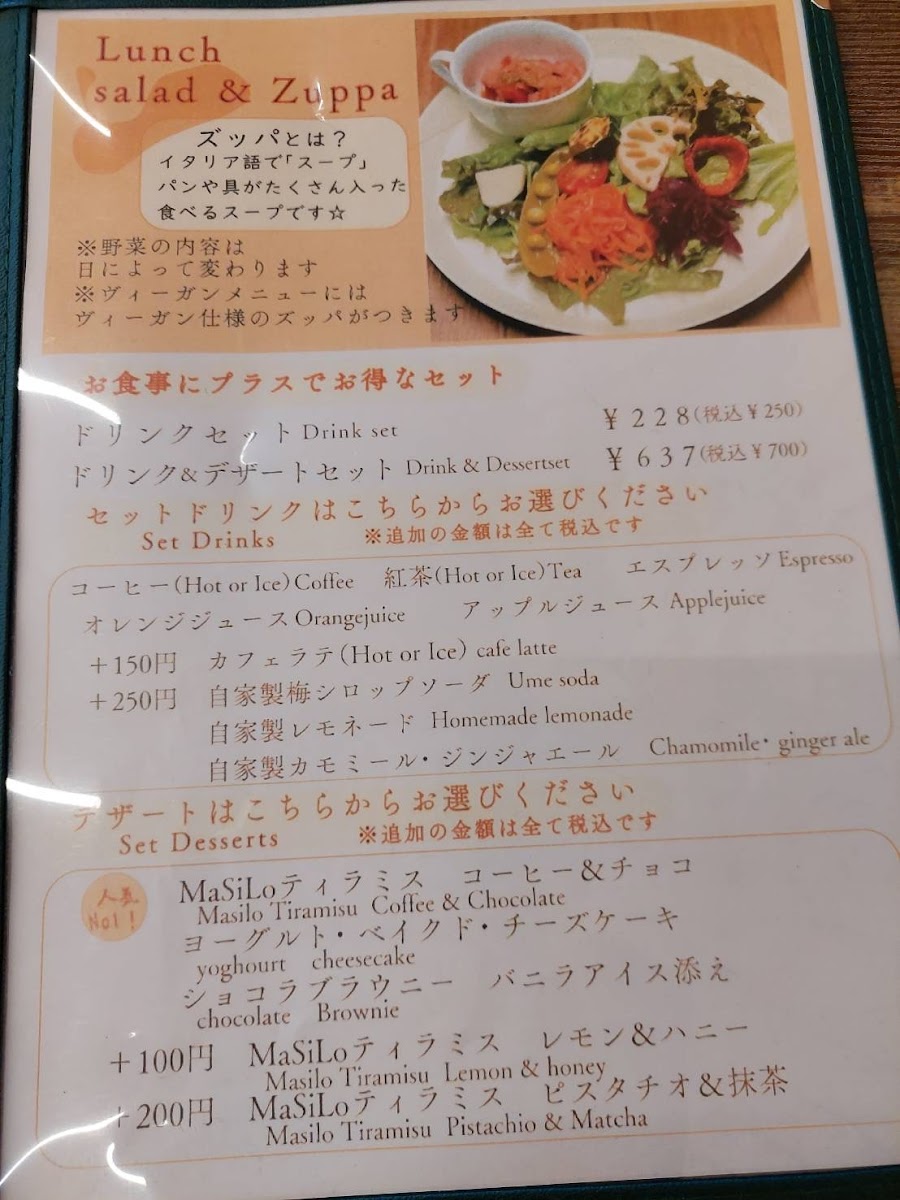 Lunch
salad & Zuppa
ズッパとは?
イタリア語で「スープ」
パンや具がたくさん入った
食べるスープです☆
※野菜の内容は
日によって変わります
※ヴィーガンメニューには
ヴィーガン仕様のズッパがつきます
お食事にプラスでお得なセット
ドリンクセット Drink set ¥228(税込¥250)
ドリンク&デザートセット Drink & Dessertset ¥637(税込¥700)
セットドリンクはこちらからお選びください
Set Drinks ※追加の金額は全て税込です
コーヒー(Hot or Ice)Coffee 紅茶(Hot or Ice)Tea エスプレッソ Espresso
オレンジジュース Orangejuice アップルジュース Applejuice
+150円 カフェラテ(Hot or Ice) cafe latte
+250円 自家製梅シロップソーダ Ume soda
自家製レモネード Homemade lemonade
自家製カモミール・ジンジャエール Chamomile・ginger ale
デザートはこちらからお選びください
Set Desserts ※追加の金額は全て税込です
人気
No1!
MaSiLoティラミス コーヒー&チョコ
Masilo Tiramisu Coffee & Chocolate
ヨーグルト・ベイクド・チーズケーキ
yoghourt cheesecake
ショコラブラウニー バニラアイス添え
chocolate Brownie
+100円 MaSiLoティラミス レモン&ハニー
Masilo Tiramisu Lemon & honey
+200円 MaSiLoティラミス ピスタチオ&抹茶
Masilo Tiramisu Pistachio & Matcha